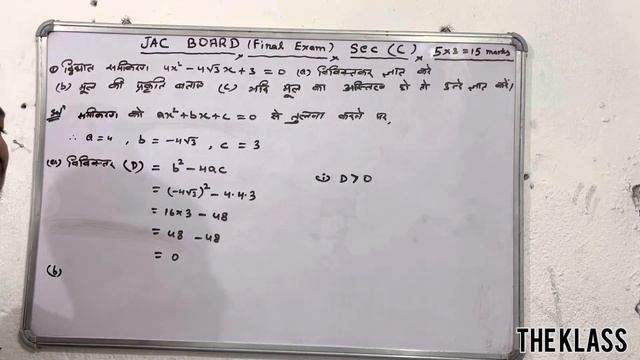 JAC BOARD (Final Exam) Sec (C) 5×3=15 marks
① द्विघात समीकरण 4x² - 4√3x + 3 = 0 (a) विविक्तकर ज्ञात करें
(b) मूल की प्रकृति बताएं (c) यदि मूल का अस्तित्व हो तो उन्हें ज्ञात करें।
समीकरण को ax² + bx + c = 0 से तुलना करने पर,
∴ a = 4 , b = -4√3 , c = 3
(a) विविक्तर (D) = b² - 4ac
= (-4√3)² - 4·4·3
(i) D > 0
= 16×3 - 48
= 48 - 48
= 0
(b)
THE KLASS